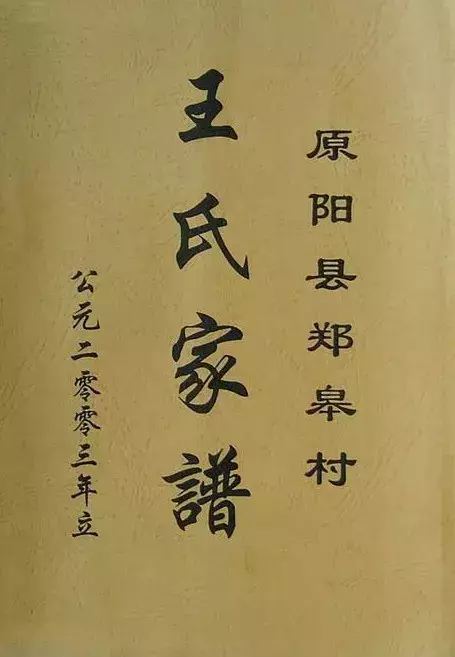 原阳县郑皋村
王氏家譜
公元二零零三年立